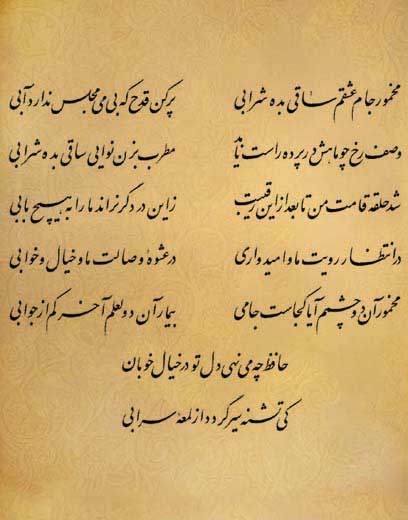 مخمور جام عشقم ساقی بده شرابی    پر کن قدح که بی می مجلس ندارد آبی
وصف رخ چو ماهش در پرده راست ناید    مطرب بزن نوایی ساقی بده شرابی
شد حلقه قامت من تا بعد از این رقیبت    زاین در دگر نراند ما را به هیچ بابی
در انتظار رویت ما و امیدواری    در عشوهٔ وصالت ما و خیال و خوابی
مخمور آن دو چشمم آیا کجاست جامی    بیمار آن دو لعلم آخر کم از جوابی
حافظ چه می‌نهی دل تو در خیال خوبان
کی تشنه سیر گردد از لمعهٔ سرابی